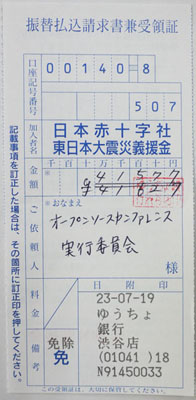 振替払込請求書兼受領証
口座記号番号
00140-8
507
加入者名
日本赤十字社
東日本大震災義援金
金額
千百十万千百十円
※
ご依頼人
※おなまえ
オープンソースカンファレンス
実行委員会
様
料金
日附印
備考
免除
免
23-07-19
ゆうちょ
銀行
渋谷店
(01041)18
N91450033
記載事項を訂正した場合は、その箇所に訂正印を押してください。
この受領証は、大切に保管してください。